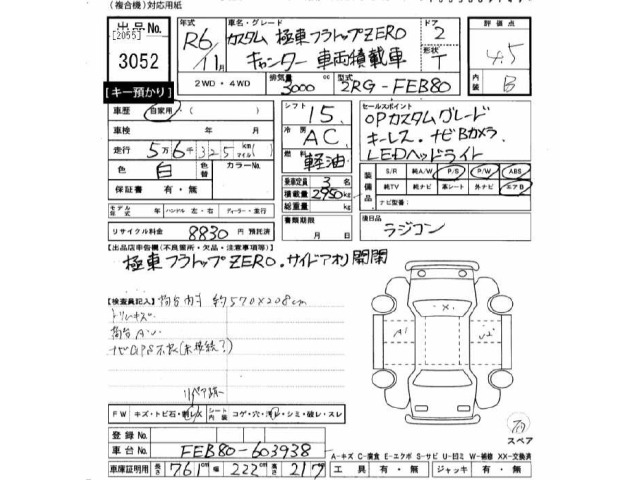 (複合機)対応用紙
出品No.
[2055]
3052
【キー預かり】
年式
R6
11月
車名・グレード
カスタム 極東フラトップZERO
キャンター 車両積載車
ドア
2
形状
T
評価点
4.5
内装
B
2WD・4WD
排気量
3000 cc
型式
2RG-FEB80
車歴
自家用 ( )
車検 年 月
走行 5万6千325 km(マイル)
色
白
色替
カラーNo.
保証書 有・無
シフト
15
冷房
AC
燃料
軽油
乗車定員 3名
積載量 2950 kg
総重量 kg
書類期限
月 日
セールスポイント
OPカスタムグレード
キーレス、ナビBカメラ
LEDヘッドライト
装備品
S/R 純A/W P/S P/W ABS
純TV 純ナビ 革シート 外ナビ エアB
ナビ型番:
後日品
ラジコン
モデル年式 年 ハンドル 左・右 ディーラー・並行
リサイクル料金 8830 円 預託済
【出品店申告欄(不良箇所・欠品・注意事項等)】
極東フラトップZERO。サイドアオリ開閉
【検査員記入】 荷台内寸 約570×208cm
トリムキズ
荷台A・U
ナビGPS不良(未接続?)
リペア跡
FW キズ・トビ石・刺しX
シート内装 コゲ・穴・汚レ・シミ・破レ・スレ
X
A1
スペア
登録No.
車台No. FEB80-603938
車庫証明用 長さ 761cm 幅 222cm 高さ 217cm
A-キズ C-腐食 E-エクボ S-サビ U-凹ミ W-補修 XX-交換済
工具 有・無 ジャッキ 有・無